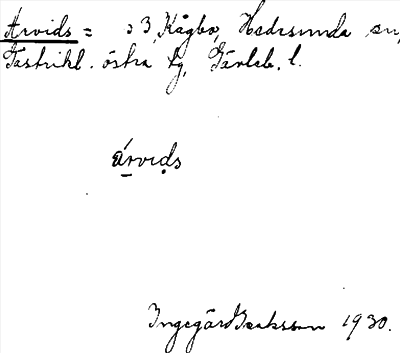 Arvids = 3, Kågbo, Hedesunda sn,
Gästrikl. östra tg, Gävleb. l.
arvids
Ingegärd Isaksson 1930.